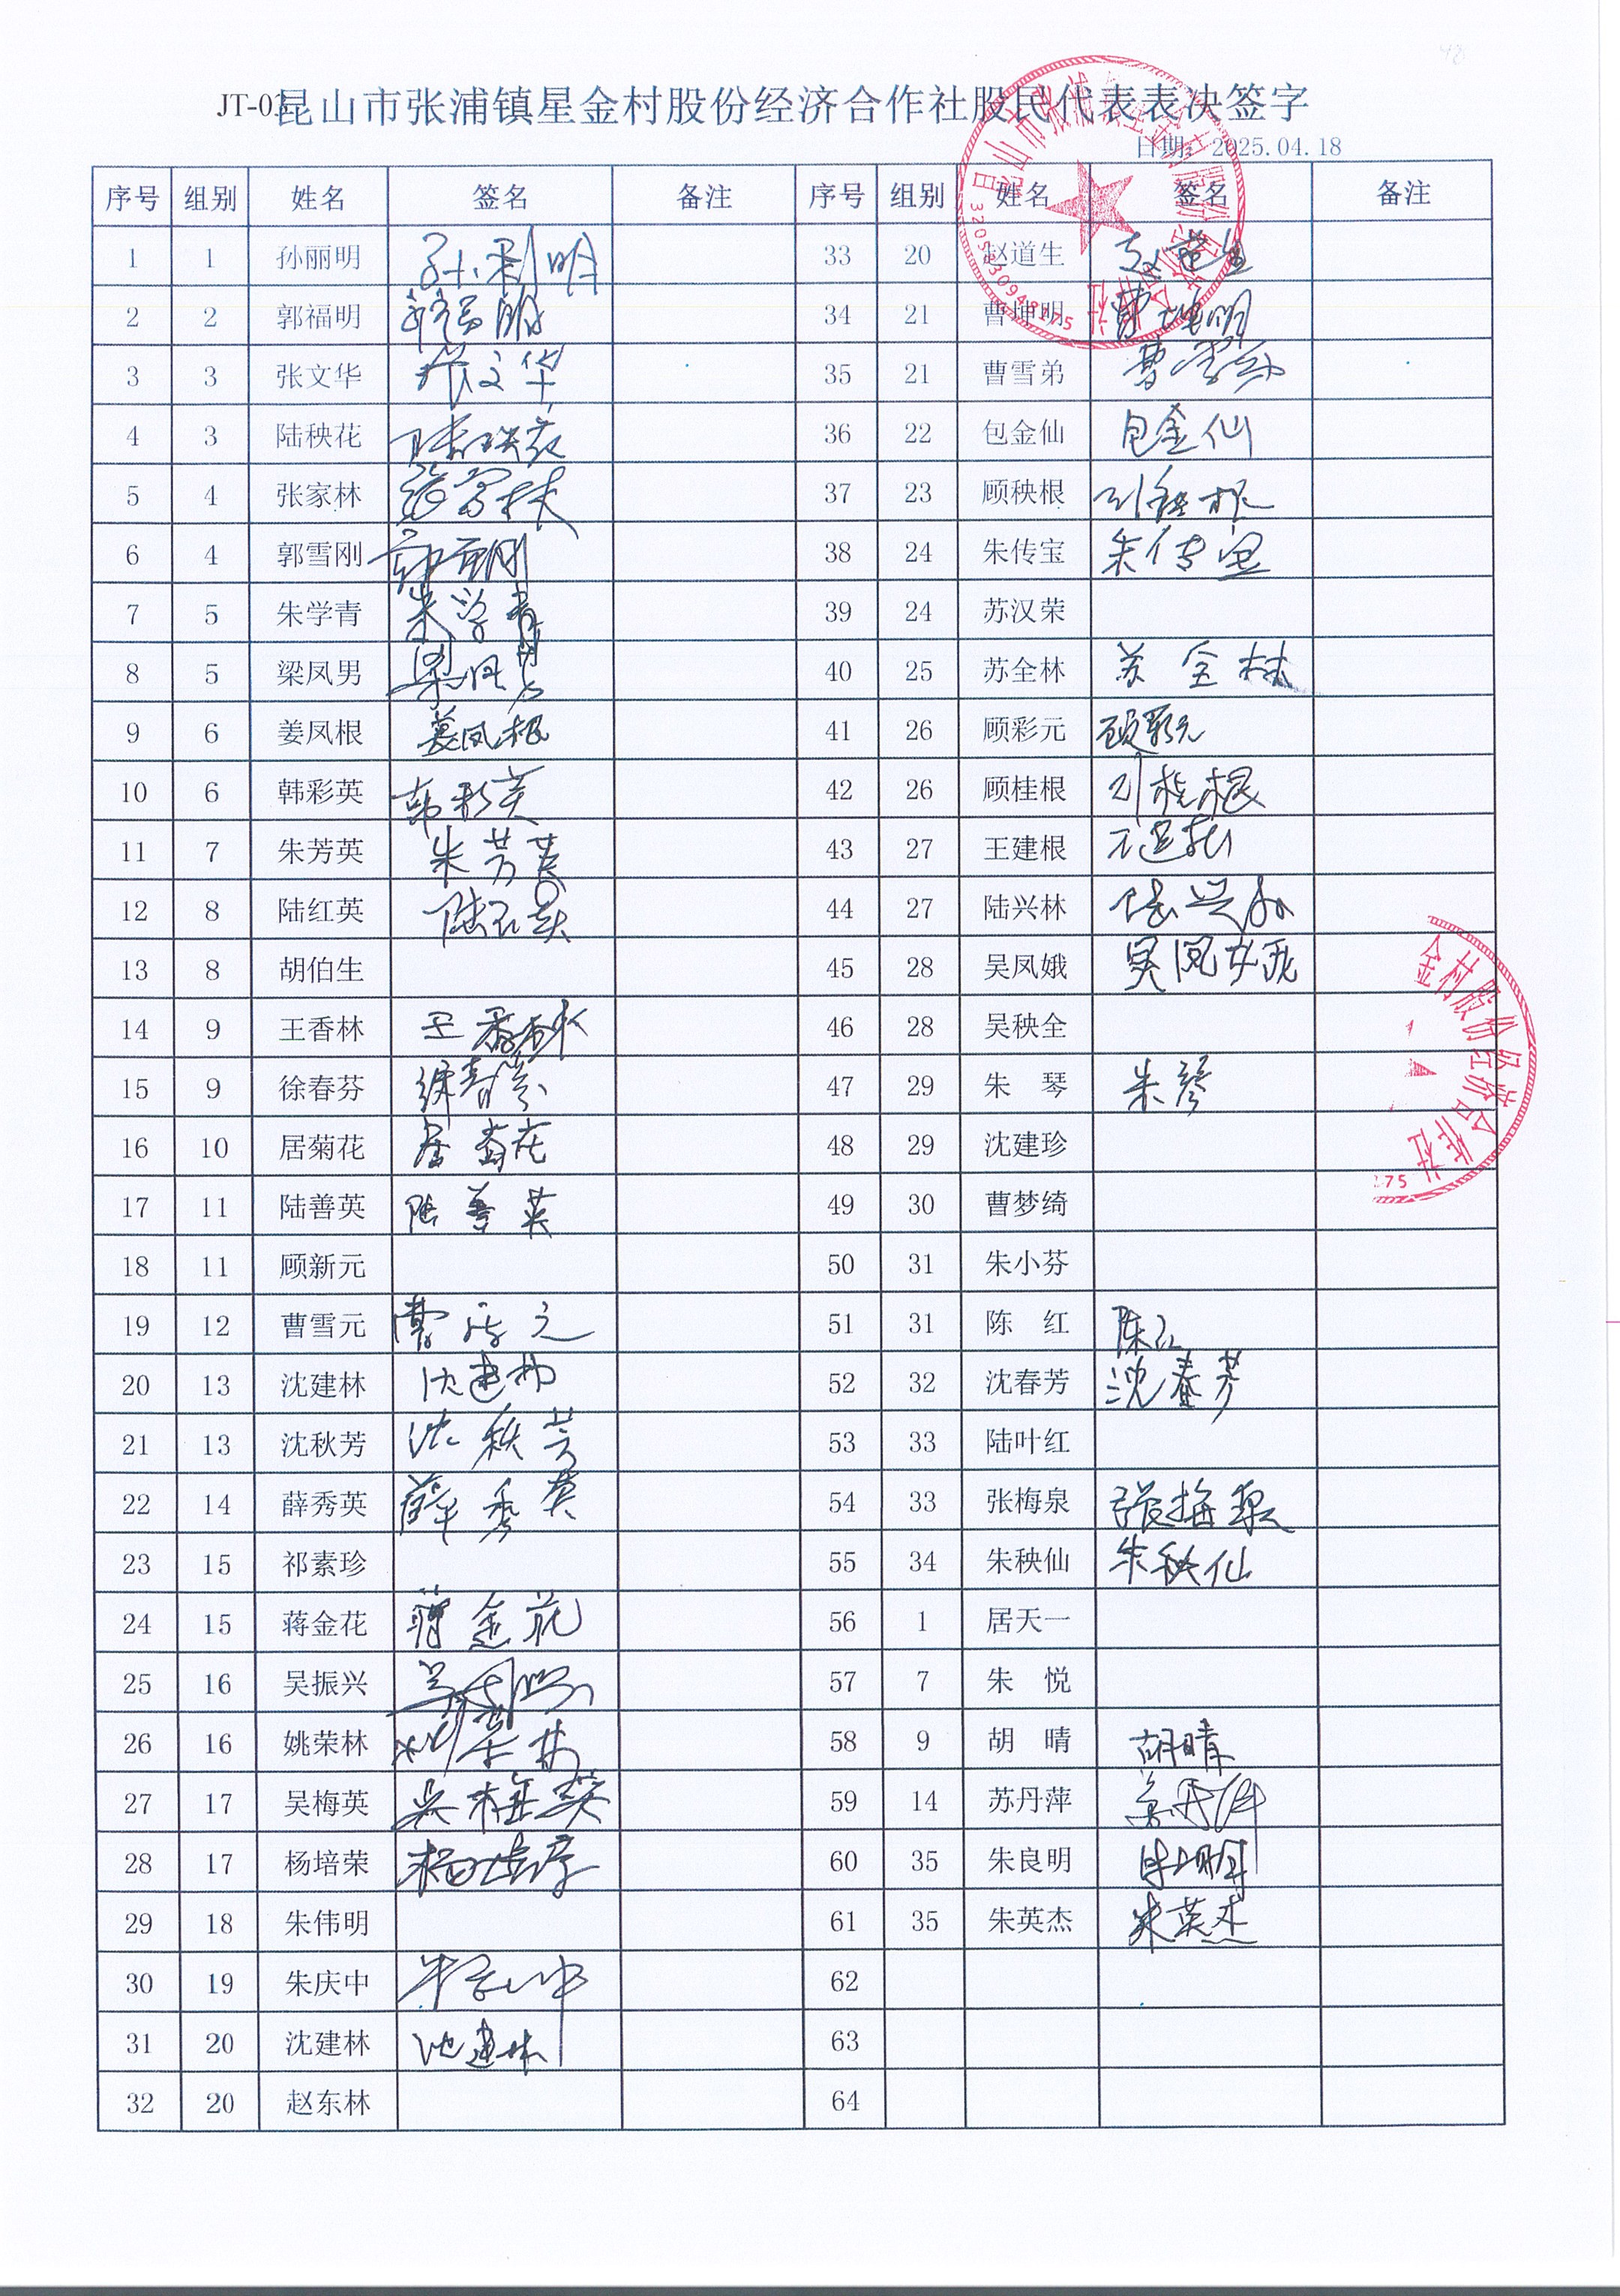 JT-03昆山市张浦镇星金村股份经济合作社股民代表表决签字
日期：2025.04.18
序号 组别 姓名 签名 备注 序号 组别 姓名 签名 备注
1 1 孙丽明 孙丽明 33 20 赵道生 赵道生
2 2 郭福明 郭福明 34 21 曹坤明 曹坤明
3 3 张文华 张文华 35 21 曹雪弟 曹雪弟
4 3 陆秧花 陆秧花 36 22 包金仙 包金仙
5 4 张家林 张家林 37 23 顾秧根 顾秧根
6 4 郭雪刚 郭雪刚 38 24 朱传宝 朱传宝
7 5 朱学青 朱学青 39 24 苏汉荣
8 5 梁凤男 梁凤男 40 25 苏全林 苏全林
9 6 姜凤根 姜凤根 41 26 顾彩元 顾彩元
10 6 韩彩英 韩彩英 42 26 顾桂根 顾桂根
11 7 朱芳英 朱芳英 43 27 王建根 王建根
12 8 陆红英 陆红英 44 27 陆兴林 陆兴林
13 8 胡伯生 45 28 吴凤娥 吴凤娥
14 9 王香林 王香林 46 28 吴秧全
15 9 徐春芬 徐春芬 47 29 朱 琴 朱琴
16 10 居菊花 居菊花 48 29 沈建珍
17 11 陆善英 陆善英 49 30 曹梦绮
18 11 顾新元 50 31 朱小芬
19 12 曹雪元 曹雪元 51 31 陈 红 陈红
20 13 沈建林 沈建林 52 32 沈春芳 沈春芳
21 13 沈秋芳 沈秋芳 53 33 陆叶红
22 14 薛秀英 薛秀英 54 33 张梅泉 張梅泉
23 15 祁素珍 55 34 朱秧仙 朱秧仙
24 15 蒋金花 蒋金花 56 1 居天一
25 16 吴振兴 吴振兴 57 7 朱 悦
26 16 姚荣林 姚荣林 58 9 胡 晴 胡晴
27 17 吴梅英 吴梅英 59 14 苏丹萍 苏丹萍
28 17 杨培荣 杨培荣 60 35 朱良明 朱良明
29 18 朱伟明 61 35 朱英杰 朱英杰
30 19 朱庆中 朱庆中 62
31 20 沈建林 沈建林 63
32 20 赵东林 64
金村股份经济合作社
175